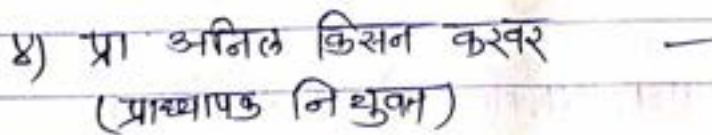 ४) प्रा अनिल किसन करवर —
(प्राध्यापक नियुक्त)